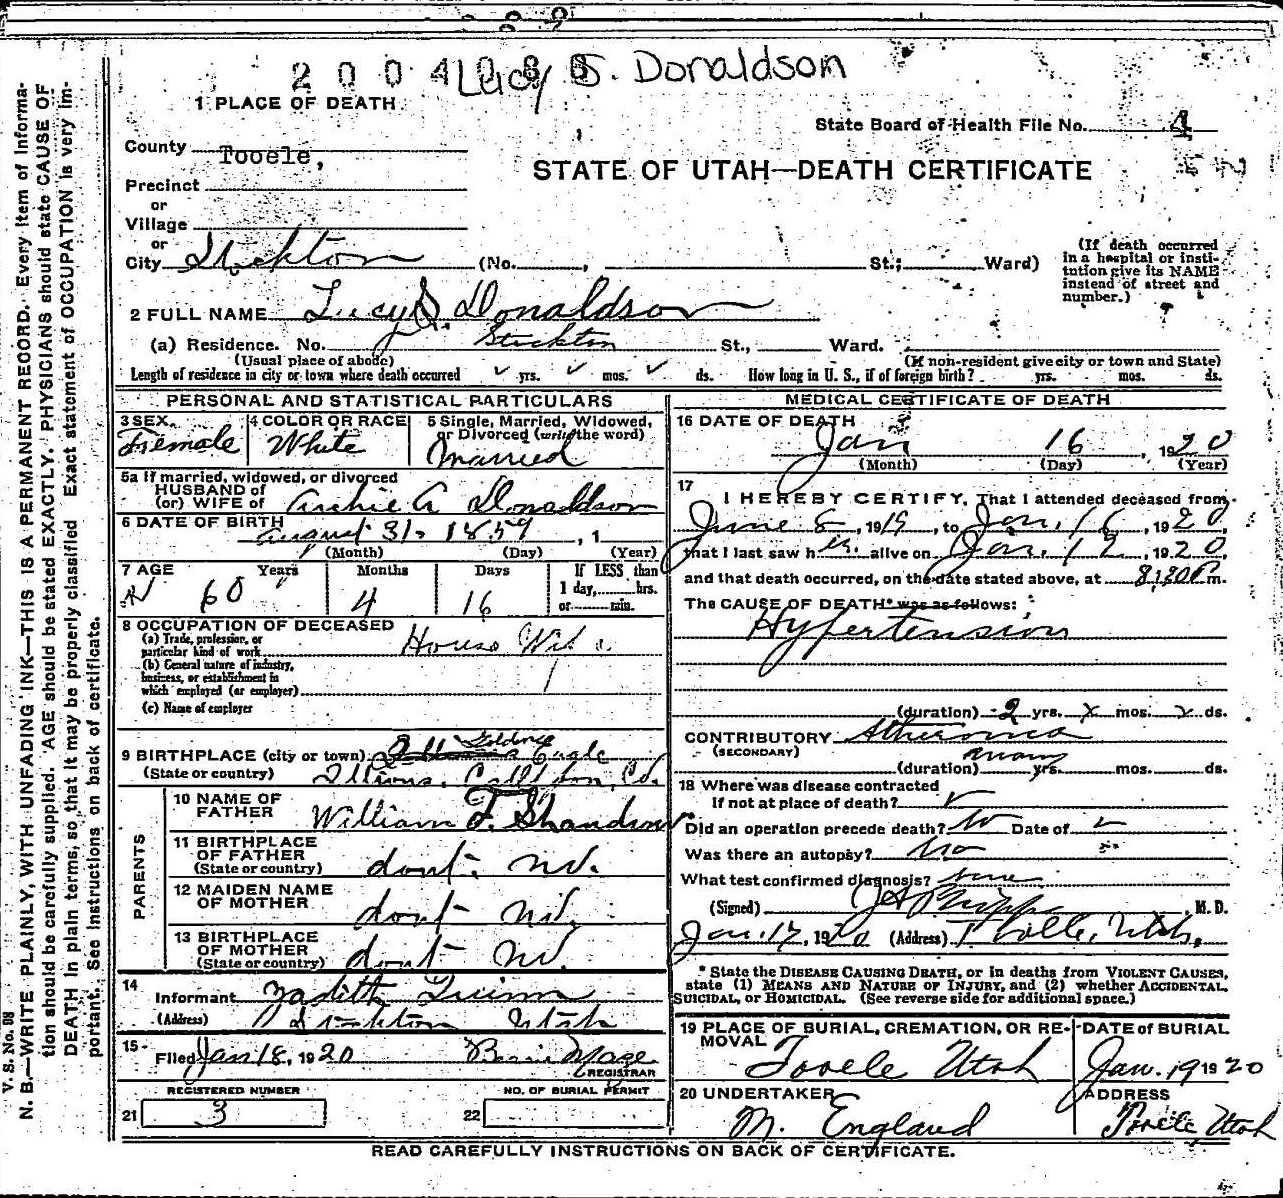 2004088
Lucy S. Donaldson
1 PLACE OF DEATH
State Board of Health File No. 4
County Tooele,
STATE OF UTAH—DEATH CERTIFICATE
Precinct
or
Village
or
City Stockton (No. , St.; Ward)
(If death occurred in a hospital or institution give its NAME instead of street and number.)
2 FULL NAME Lucy S. Donaldson
(a) Residence. No. Stockton St., Ward.
(Usual place of abode) (If non-resident give city or town and State)
Length of residence in city or town where death occurred yrs. mos. ds. How long in U. S., if of foreign birth? yrs. mos. ds.
PERSONAL AND STATISTICAL PARTICULARS
3 SEX. Female
4 COLOR OR RACE White
5 Single, Married, Widowed, or Divorced (write the word) Married
5a If married, widowed, or divorced
HUSBAND of
(or) WIFE of Archie A Donaldson
6 DATE OF BIRTH August 31, 1859 , 1
(Month) (Day) (Year)
7 AGE Years 60 Months 4 Days 16 If LESS than 1 day, hrs. or min.
8 OCCUPATION OF DECEASED
(a) Trade, profession, or particular kind of work House Wife
(b) General nature of industry, business, or establishment in which employed (or employer)
(c) Name of employer
9 BIRTHPLACE (city or town) Eagle
(State or country) Co.
PARENTS
10 NAME OF FATHER William F.
11 BIRTHPLACE OF FATHER (State or country) dont
12 MAIDEN NAME OF MOTHER dont
13 BIRTHPLACE OF MOTHER (State or country) dont
14 Informant Quinn
(Address) Stockton Utah
15 Filed Jan 18, 1920
REGISTRAR
REGISTERED NUMBER NO. OF BURIAL PERMIT
21 3 22
MEDICAL CERTIFICATE OF DEATH
16 DATE OF DEATH
Jan 16, 1920
(Month) (Day) (Year)
17 I HEREBY CERTIFY, That I attended deceased from
June 8, 1919, to Jan. 16, 1920,
that I last saw her alive on Jan. 12, 1920,
and that death occurred, on the date stated above, at 8:30 P m.
The CAUSE OF DEATH* was as follows:
Hypertension
(duration) 2 yrs. x mos. x ds.
CONTRIBUTORY Atheroma
(SECONDARY)
(duration) many yrs. mos. ds.
18 Where was disease contracted
If not at place of death?
Did an operation precede death? No Date of
Was there an autopsy? No
What test confirmed diagnosis?
(Signed) M. D.
Jan. 17, 1920 (Address) Tooele, Utah,
* State the DISEASE CAUSING DEATH, or in deaths from VIOLENT CAUSES,
state (1) MEANS AND NATURE OF INJURY, and (2) whether ACCIDENTAL,
SUICIDAL, or HOMICIDAL. (See reverse side for additional space.)
19 PLACE OF BURIAL, CREMATION, OR REMOVAL Tooele Utah
DATE of BURIAL Jan. 19 1920
20 UNDERTAKER M. England
ADDRESS Tooele Utah
READ CAREFULLY INSTRUCTIONS ON BACK OF CERTIFICATE.
V. S. No. 98
N. B.—WRITE PLAINLY, WITH UNFADING INK—THIS IS A PERMANENT RECORD. Every item of Informa-
tion should be carefully supplied. AGE should be stated EXACTLY. PHYSICIANS should state CAUSE OF
DEATH In plain terms, so that it may be properly classified. Exact statement of OCCUPATION is very im-
portant. See instructions on back of certificate.